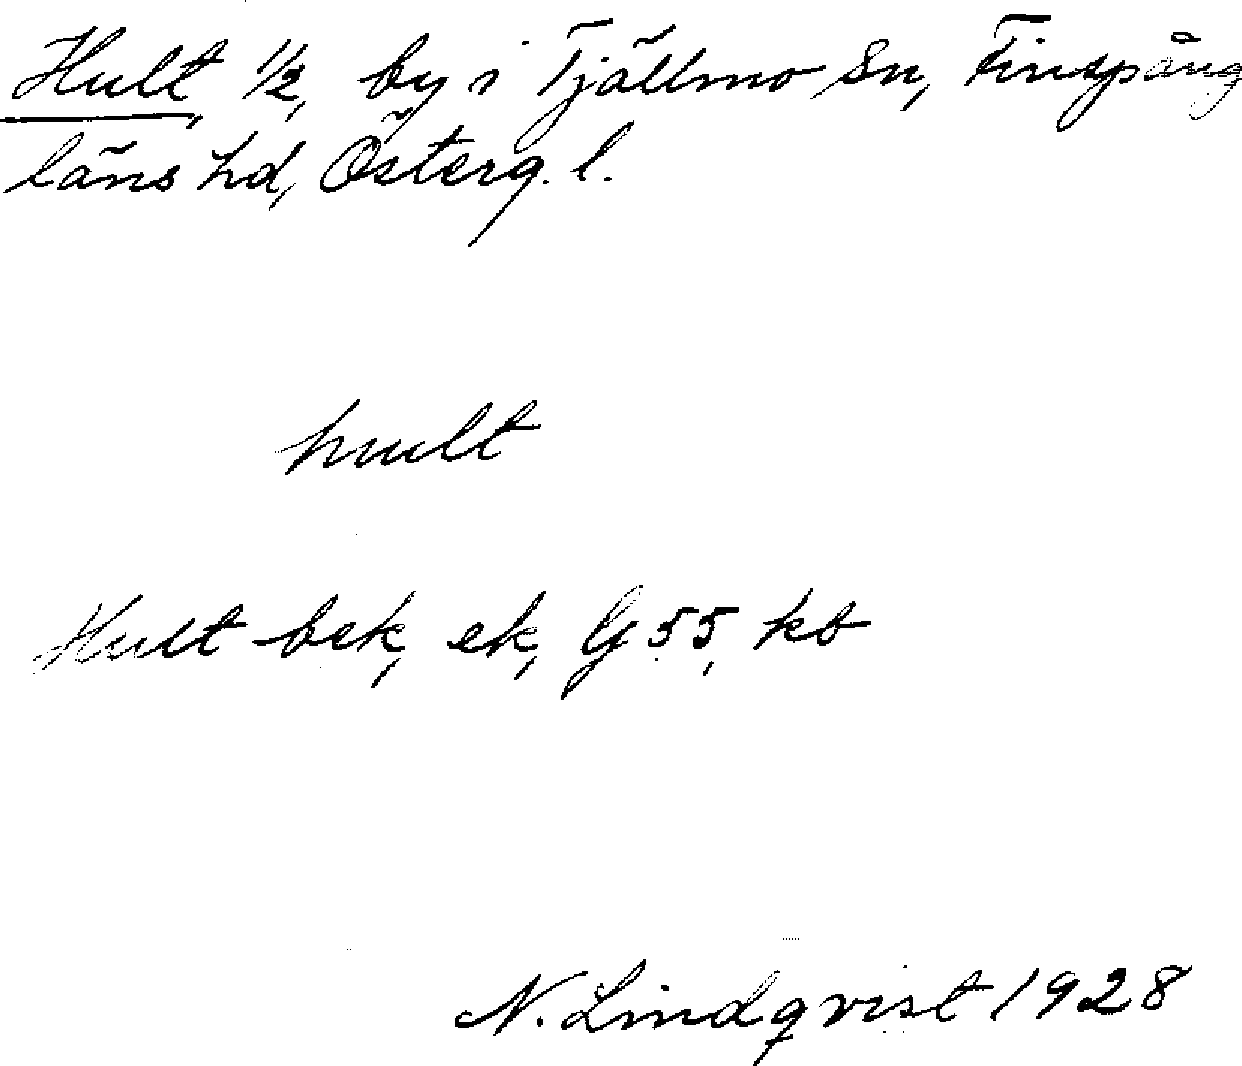 Hult, 1/2, by i Tjällmo sn, Finspång
läns hd, Österg. l.
hult
Hult bek, ek, G 55, kb
N. Lindqvist 1928